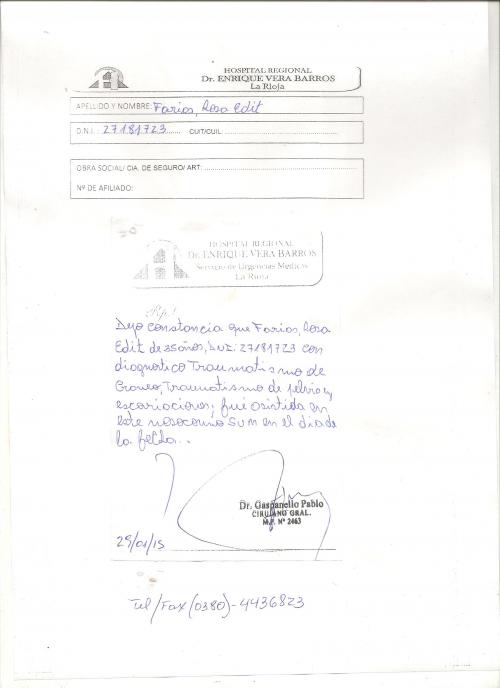 HOSPITAL REGIONAL
Dr. ENRIQUE VERA BARROS
La Rioja
APELLIDO Y NOMBRE: Farias, Rosa Edit
D.N.I.: 27181723 CUIT/CUIL:
OBRA SOCIAL/ CIA. DE SEGURO/ ART:
Nº DE AFILIADO:
HOSPITAL REGIONAL
Dr. ENRIQUE VERA BARROS
Servicio de Urgencias Médicas
La Rioja
Rp/
Dejo constancia que Farias, Rosa
Edit de 35 años, DNI: 27181723 con
diagnostico Traumatismo de
Craneo, Traumatismo de pelvis y
escoriaciones; fué asistida en
este nosocomio en el dia de
la fecha..
Dr. Gaspanello Pablo
CIRUJANO GRAL.
M.P. Nº 2463
29/01/15
Tel/Fax (0380)-4436823